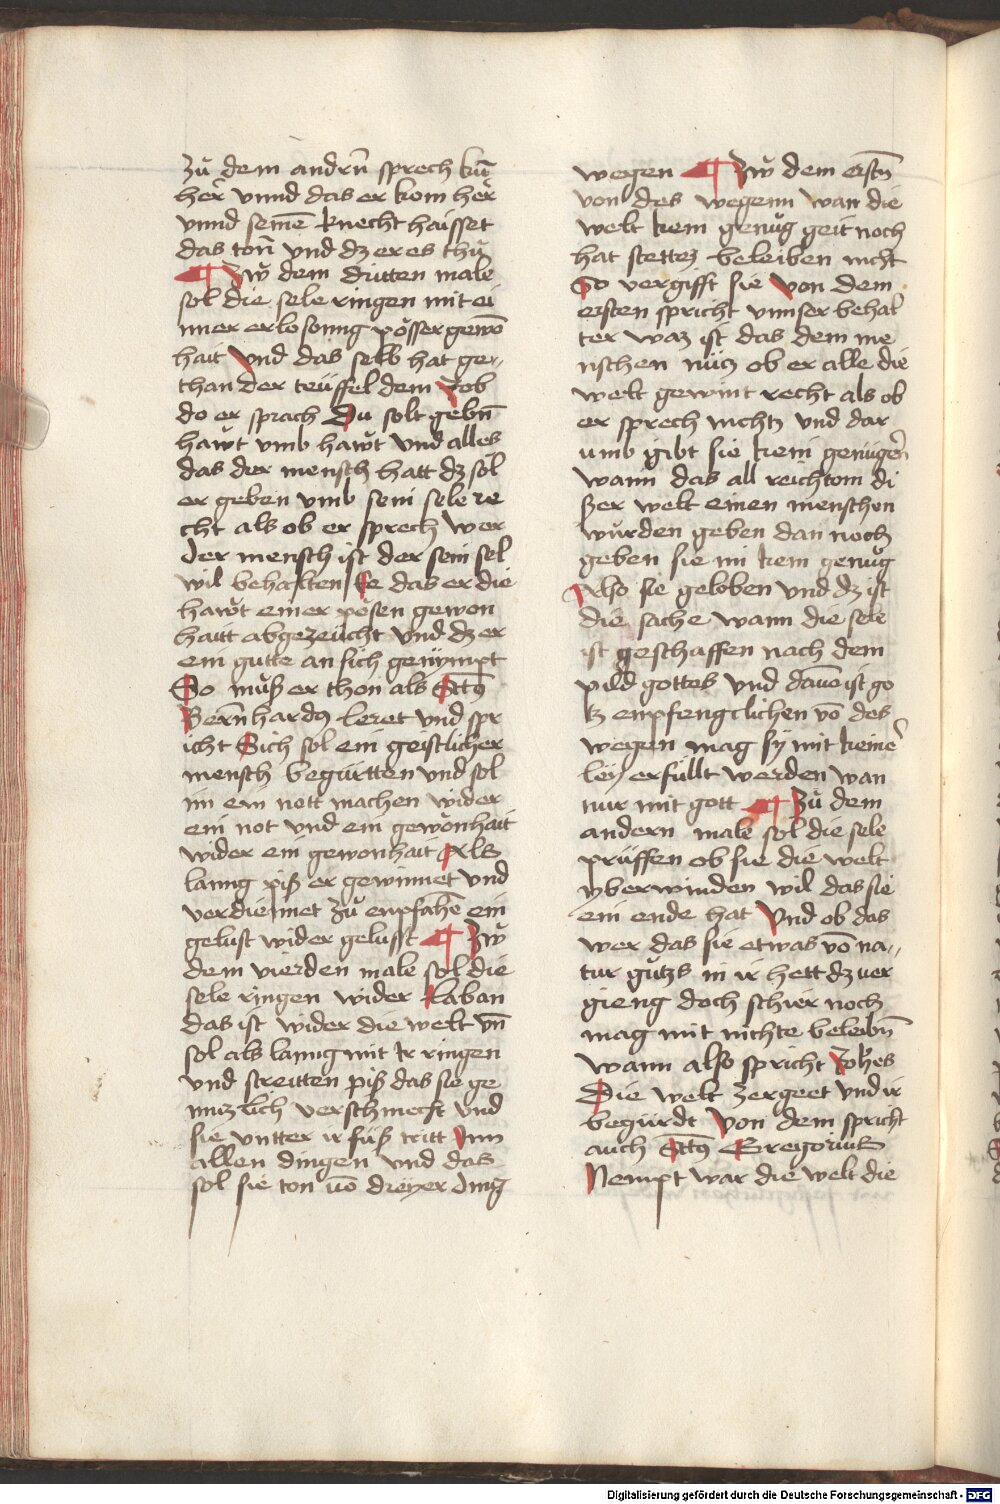 zů dem andrn̄ sprech kū
her vnnd das er kom her
vnnd seinē knecht haisset
das ton̄ vnd dz er es thů
¶ Zẘ dem dritten male
sol die sele ringen mit ei
nner erlosonng po̎sser gewō
hait Vnd das selb hat ge„
than der teüffel dem Job
do er sprach Du solt gebn̄
haw̎t vmb haw̎t Vnd alles
das der mensch hatt dz sol
er geben vmb sein sele re
cht als ob er sprech wer
der mensch ist der sein sel
wil behalten Ee das er die
haw̎t einer po̎sen gewon
haitt abgezeücht vnd dz er
ein gutte an sich genÿmpt
So můß er thon als Sctꝰ
Bern̄hardꝰ leret vnd spr
icht Sich sol ein geistlicher
mensch begürtten vnd sol
im ein nott machen wider
ein not vnd ein gewo̎nhait
wider ein gewonhait Als
lanng piß er gewinnet vnd
verdiennet zů enpfahē ein
gelust wider gelusst ¶ Zẘ
dem vierden male sol die
sele ringen wider Laban
das ist wider die welt vn̄
sol als lanng mit Ir ringen
vnd streitten piß das sie ge
nnczlich verschmecht vnd
sie vntter ir füß tritt Inn
allen dingen vnd das
sol sie ton vō dreyer ding
wegen ¶ Zẘ dem erstn̄
von des wegenn wan die
welt kein genůg geit noch
hat stettez beleiben nicht
So vergifft sie Von dem
ersten spricht vnnser behal
ter waz ist das dem me
nschen nücz ob er alle die
welt gewint recht als ob
er sprech nichtz vnd dar
umb gibt sie kein genügen̄
wann das all reichtom di
ßer welt einen menschen
würden geben dan noch
geben sie im kein genůg
Also sie geloben vnd dz ist
die sache wann die sele
ist geschaffen nach dem
pild gottes vnd dauō ist go
tz enpfengclichen vō des
wegen mag sy mit keineʳ
ley erfüllt werden wan
nur mit gott ¶ Zů dem
andern male sol die sele
prüffen ob sie die welt
yberwinden wil das sie
ein ende hat Vnd ob das
wer das sie etwas vō na„
tur gůtzs in ir hett dz ver
gieng doch schier noch
mag mit nichte beleibn̄
wann also spricht Joh̄es
Die welt zergeet vnd ir
begürdt Von dem spricht
auch Sctꝰ Gregorius
Nempt war die welt die
Digitalisierung gefördert durch die Deutsche Forschungsgemeinschaft - DFG